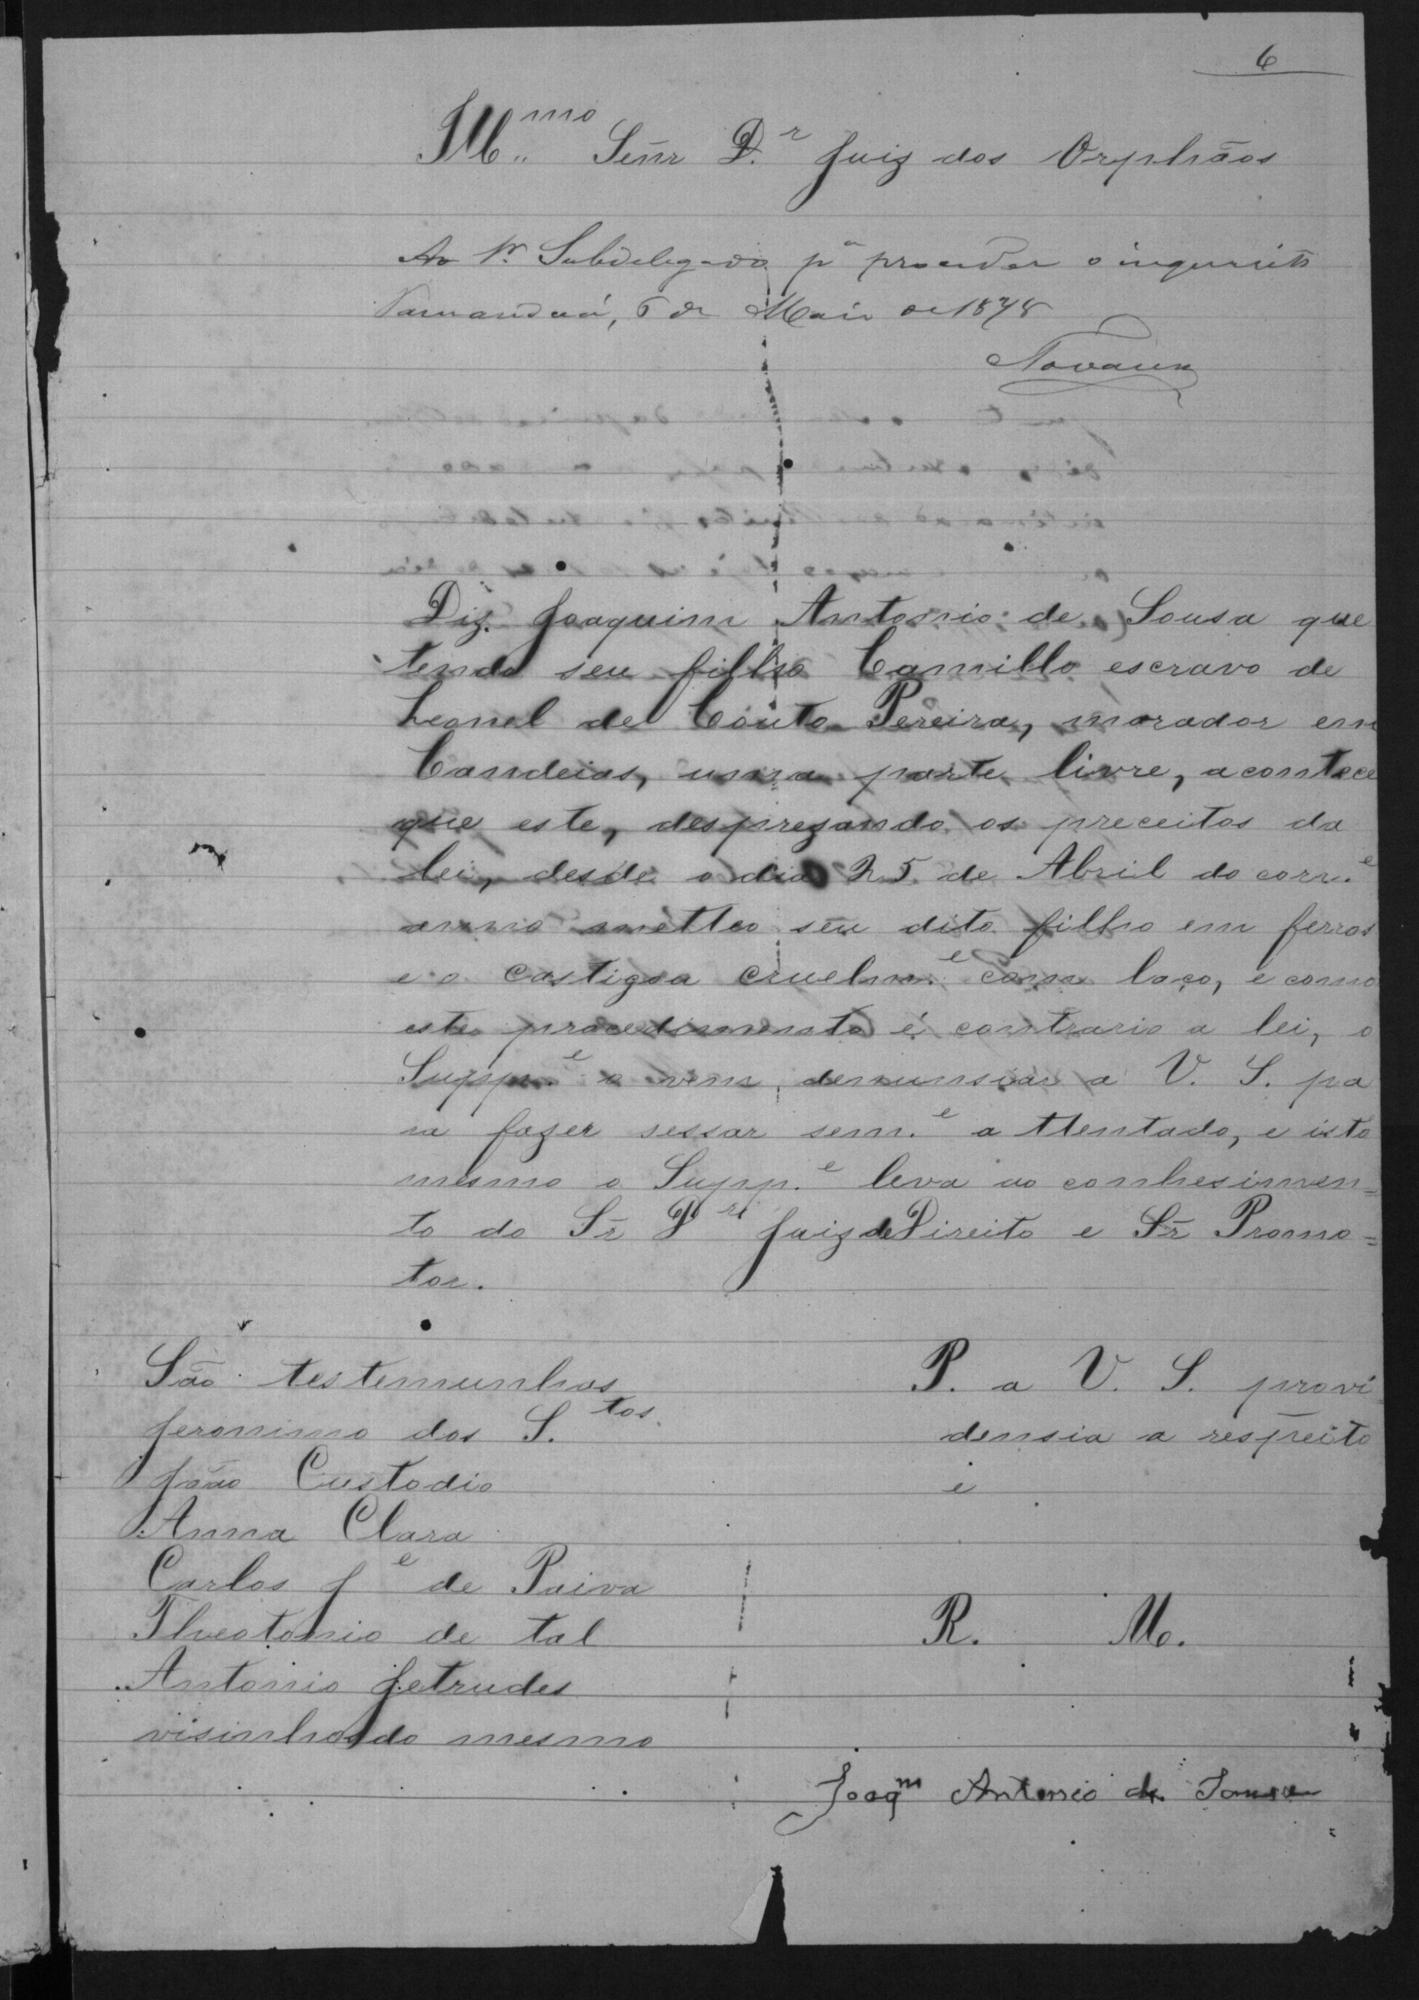 6
Ill.mo Señr D.r Juiz dos Orphãos
Ao Sr. Subdelegado pa proceder o inquerito
Tamanduá, 6 de Maio de 1878
Novaes
Diz Joaquim Antonio de Sousa que
tendo seu filho Camillo escravo de
Leonel de Couto Pereira, morador em
Candeias, uma parte livre, acontece
que este, despresando os preceitos da
lei, desde o dia 25 de Abril do corr.e
anno metteo seu dito filho em ferros
e o castiga cruelm.e com laço, e como
este procedimento é contrario a lei, o
Supp.e o vem denunsiar a V. S. pa
ra fazer sessar sem.e a ttentado, e isto
mesmo o Supp.e leva ao conhesimen=
to do Sr D.r Juiz de Direito e Sr Promo=
tor.
São testemunhas
Jeronimo dos S.tos
João Custodio
Anna Clara
Carlos J.e de Paiva
Theotonio de tal
Antonio Jetrudes
visinhos do mesmo
P. a V. S. provi
densia a respeito
e
R. M.
Joaqm Antonio de Sousa